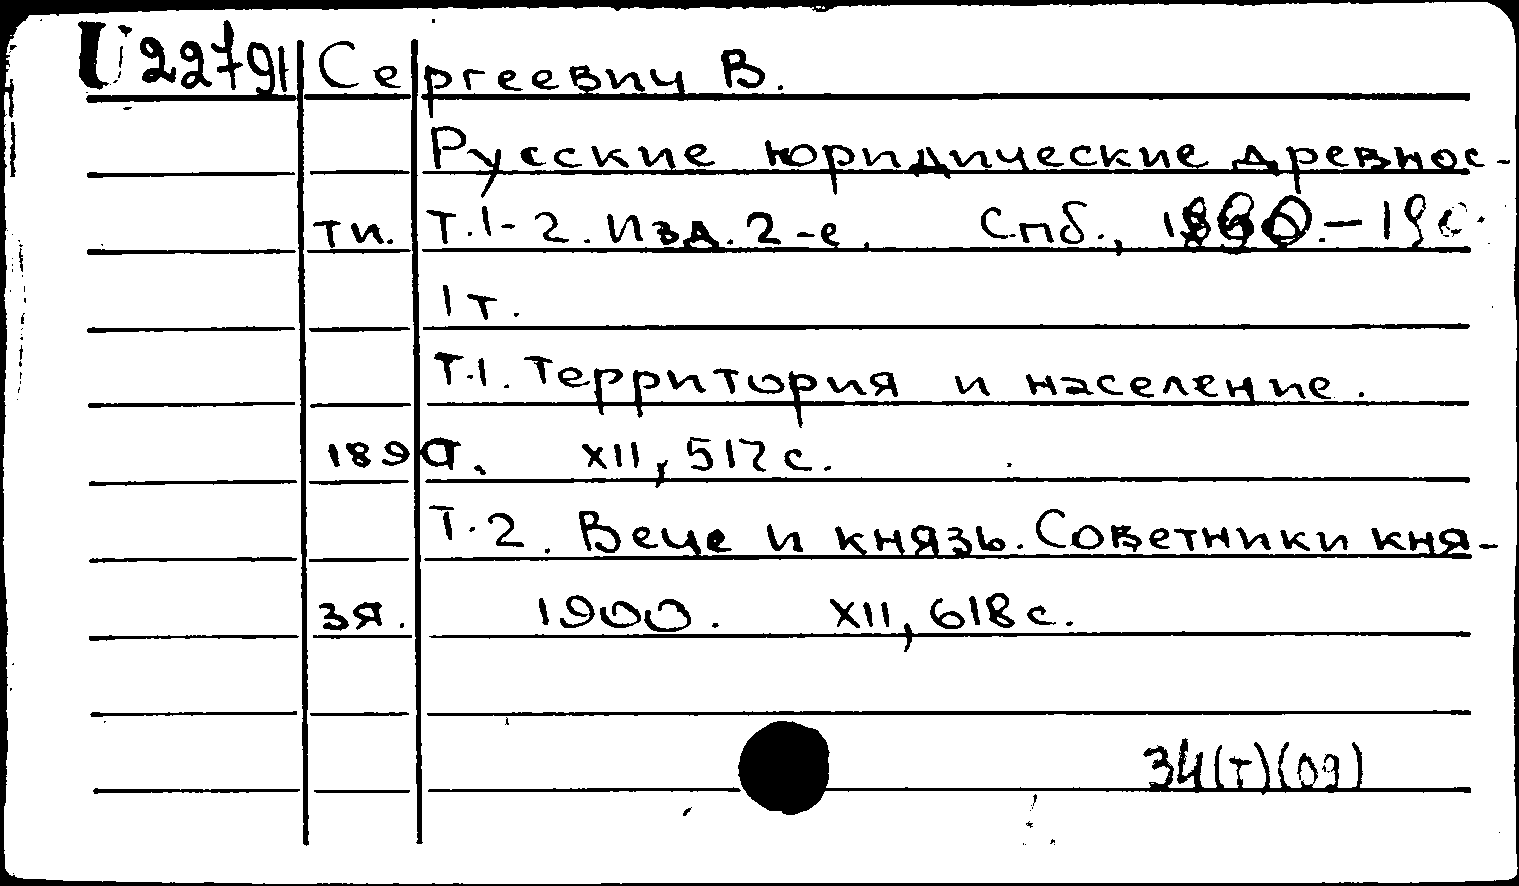 U 22791 Сергеевич В.
Русские юридические древнос-
ти. Т.1-2. Изд. 2-е. Спб.,
1 т.
Т.1. Территория и население.
XII, 512 с.
Т.2. Вече и князь. Советники кня-
зя. 1900. XII, 618 с.
34(Т)(09)